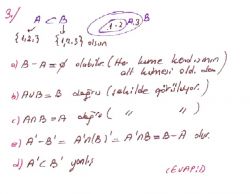 3-) A ⊂ B
{1,2} {1,2,3} olsun
1 . 2 A, 3 B
a) B - A = ∅ olabilir. (Her küme kendisinin
alt kümesi old. den)
b) A∪B = B doğru (şekilde görülüyor.)
c) A∩B = A doğru ( " " )
e) A' - B' = A'∩(B')' = A'∩B = B - A olur.
d) A' ⊂ B' yanlış
CEVAP: D